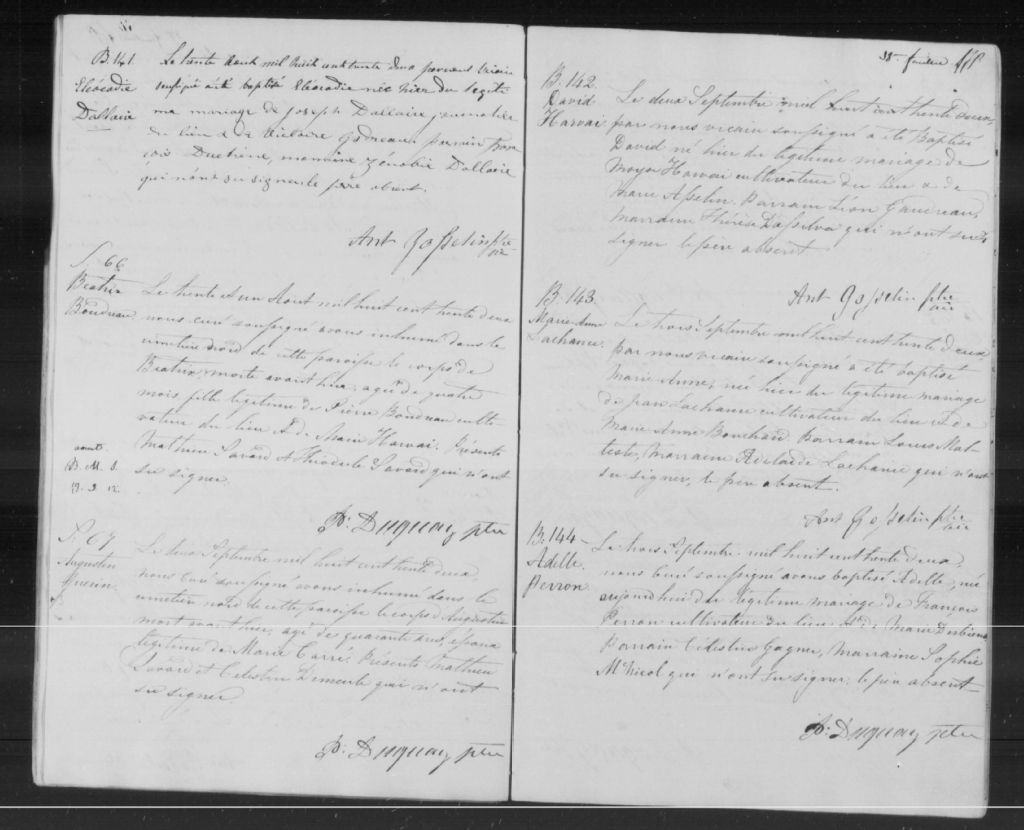 B. 141.
Eléocadie
Dallaire
Le trente Aout mil huit cent trente deux par nous vicaire
soussigné a été baptisé Eléocadie née hier du légiti-
me mariage de Joseph Dallaire journalier
du lieu & de Victoire Godreau parrain Fran
cois Duchene, marraine Zénobie Dallaire
qui n'ont su signer le père absent.
Ant Gosselin ptre
vic
S. 66
Beatrix
Boudreau
Le trente et un Aout mil huit cent trente deux
nous curé soussigné avons inhumé dans le
cimetière nord de cette paroisse le corps de
Beatrix, morte avant hier, agée de quatre
mois fille légitime de Pierre Boudreau culti-
vateur du lieu & de Marie Harvai. Présents
Mathieu Savard et Théodule Savard qui n'ont
su signer.
aout
B. M. S.
13. 3. 12.
P: Duguay ptre
S. 67
Augustin
Guerin
Le deux Septembre mil huit cent trente deux,
nous curé soussigné avons inhumé dans le
cimetière nord de cette paroisse le corps Augustin
mort avant hier, agé de quarante ans, epoux
légitime de Marie Carré. Présents Mathieu
Savard et Célestin Demeule qui n'ont
su signer
P: Duguay ptre
38me feuillet
B. 142.
David
Harvai
Le deux Septembre mil huit cent trente deux,
par nous vicaire soussigné a été baptisé
David né hier du légitime mariage de
Moyse Harvai cultivateur du lieu & de
Marie Asselin. Parrain Léon Gaudreau,
marraine Thérèse Dasilva qui n'ont su
signer le père absent
Ant Gosselin ptre
vic
B. 143.
Marie Anne
Lachance
Le trois Septembre mil huit cent trente deux
par nous vicaire soussigné a été baptisé
Marie Anne, née hier du légitime mariage
de Jean Lachance cultivateur du lieu & de
Marie Anne Bouchard. Parrain Louis Mal-
teste, marraine Adelaide Lachance qui n'ont
su signer, le père absent.
Ant Gosselin ptre
vic
B. 144
Adelle
Perron
Le trois Septembre mil huit cent trente deux,
nous curé soussigné avons baptisé Adelle, née
aujourd'hui du légitime mariage de François
Perron cultivateur du lieu & de Marie Desbiens
Parrain Célestin Gagner, Marraine Sophie
McNicol qui n'ont su signer, le père absent
P: Duguay ptre